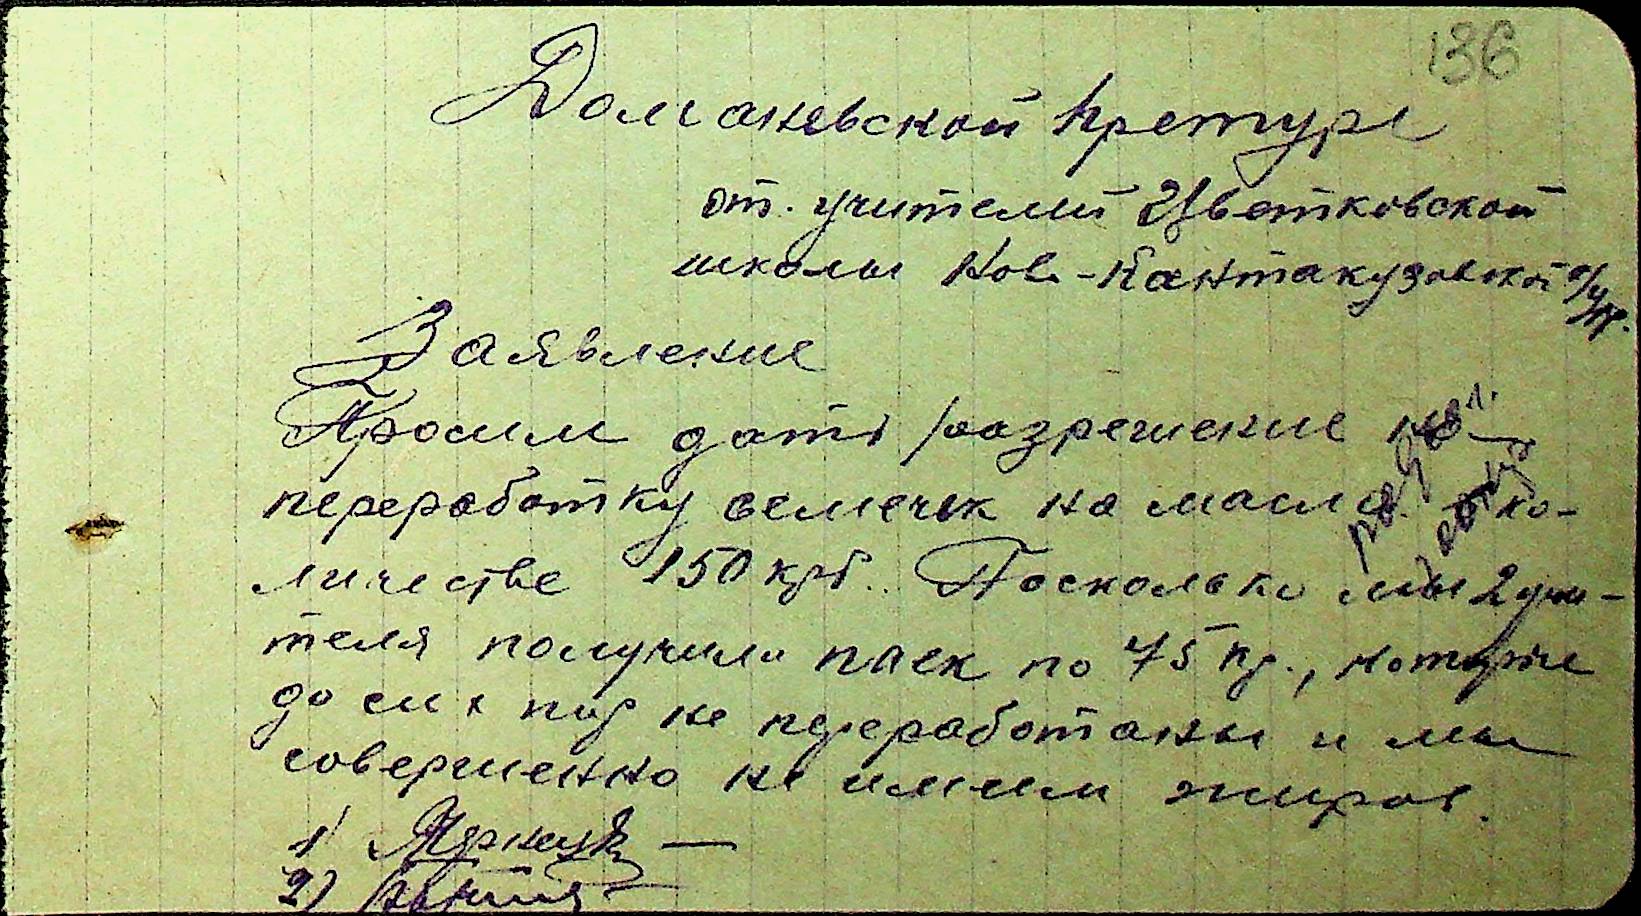 136
Доманевской претуре
от. учителей Цветковской
школы Нов-Кантакузовской
Заявление
Просим дать разрешение на
переработку семечек на масло в ко-
личестве 150 кгр. Поскольку мы 2 учи-
теля получили паек по 75 кг., которые
до сих пор не переработаны и мы
совершенно не имеем жиров.
1)
2)